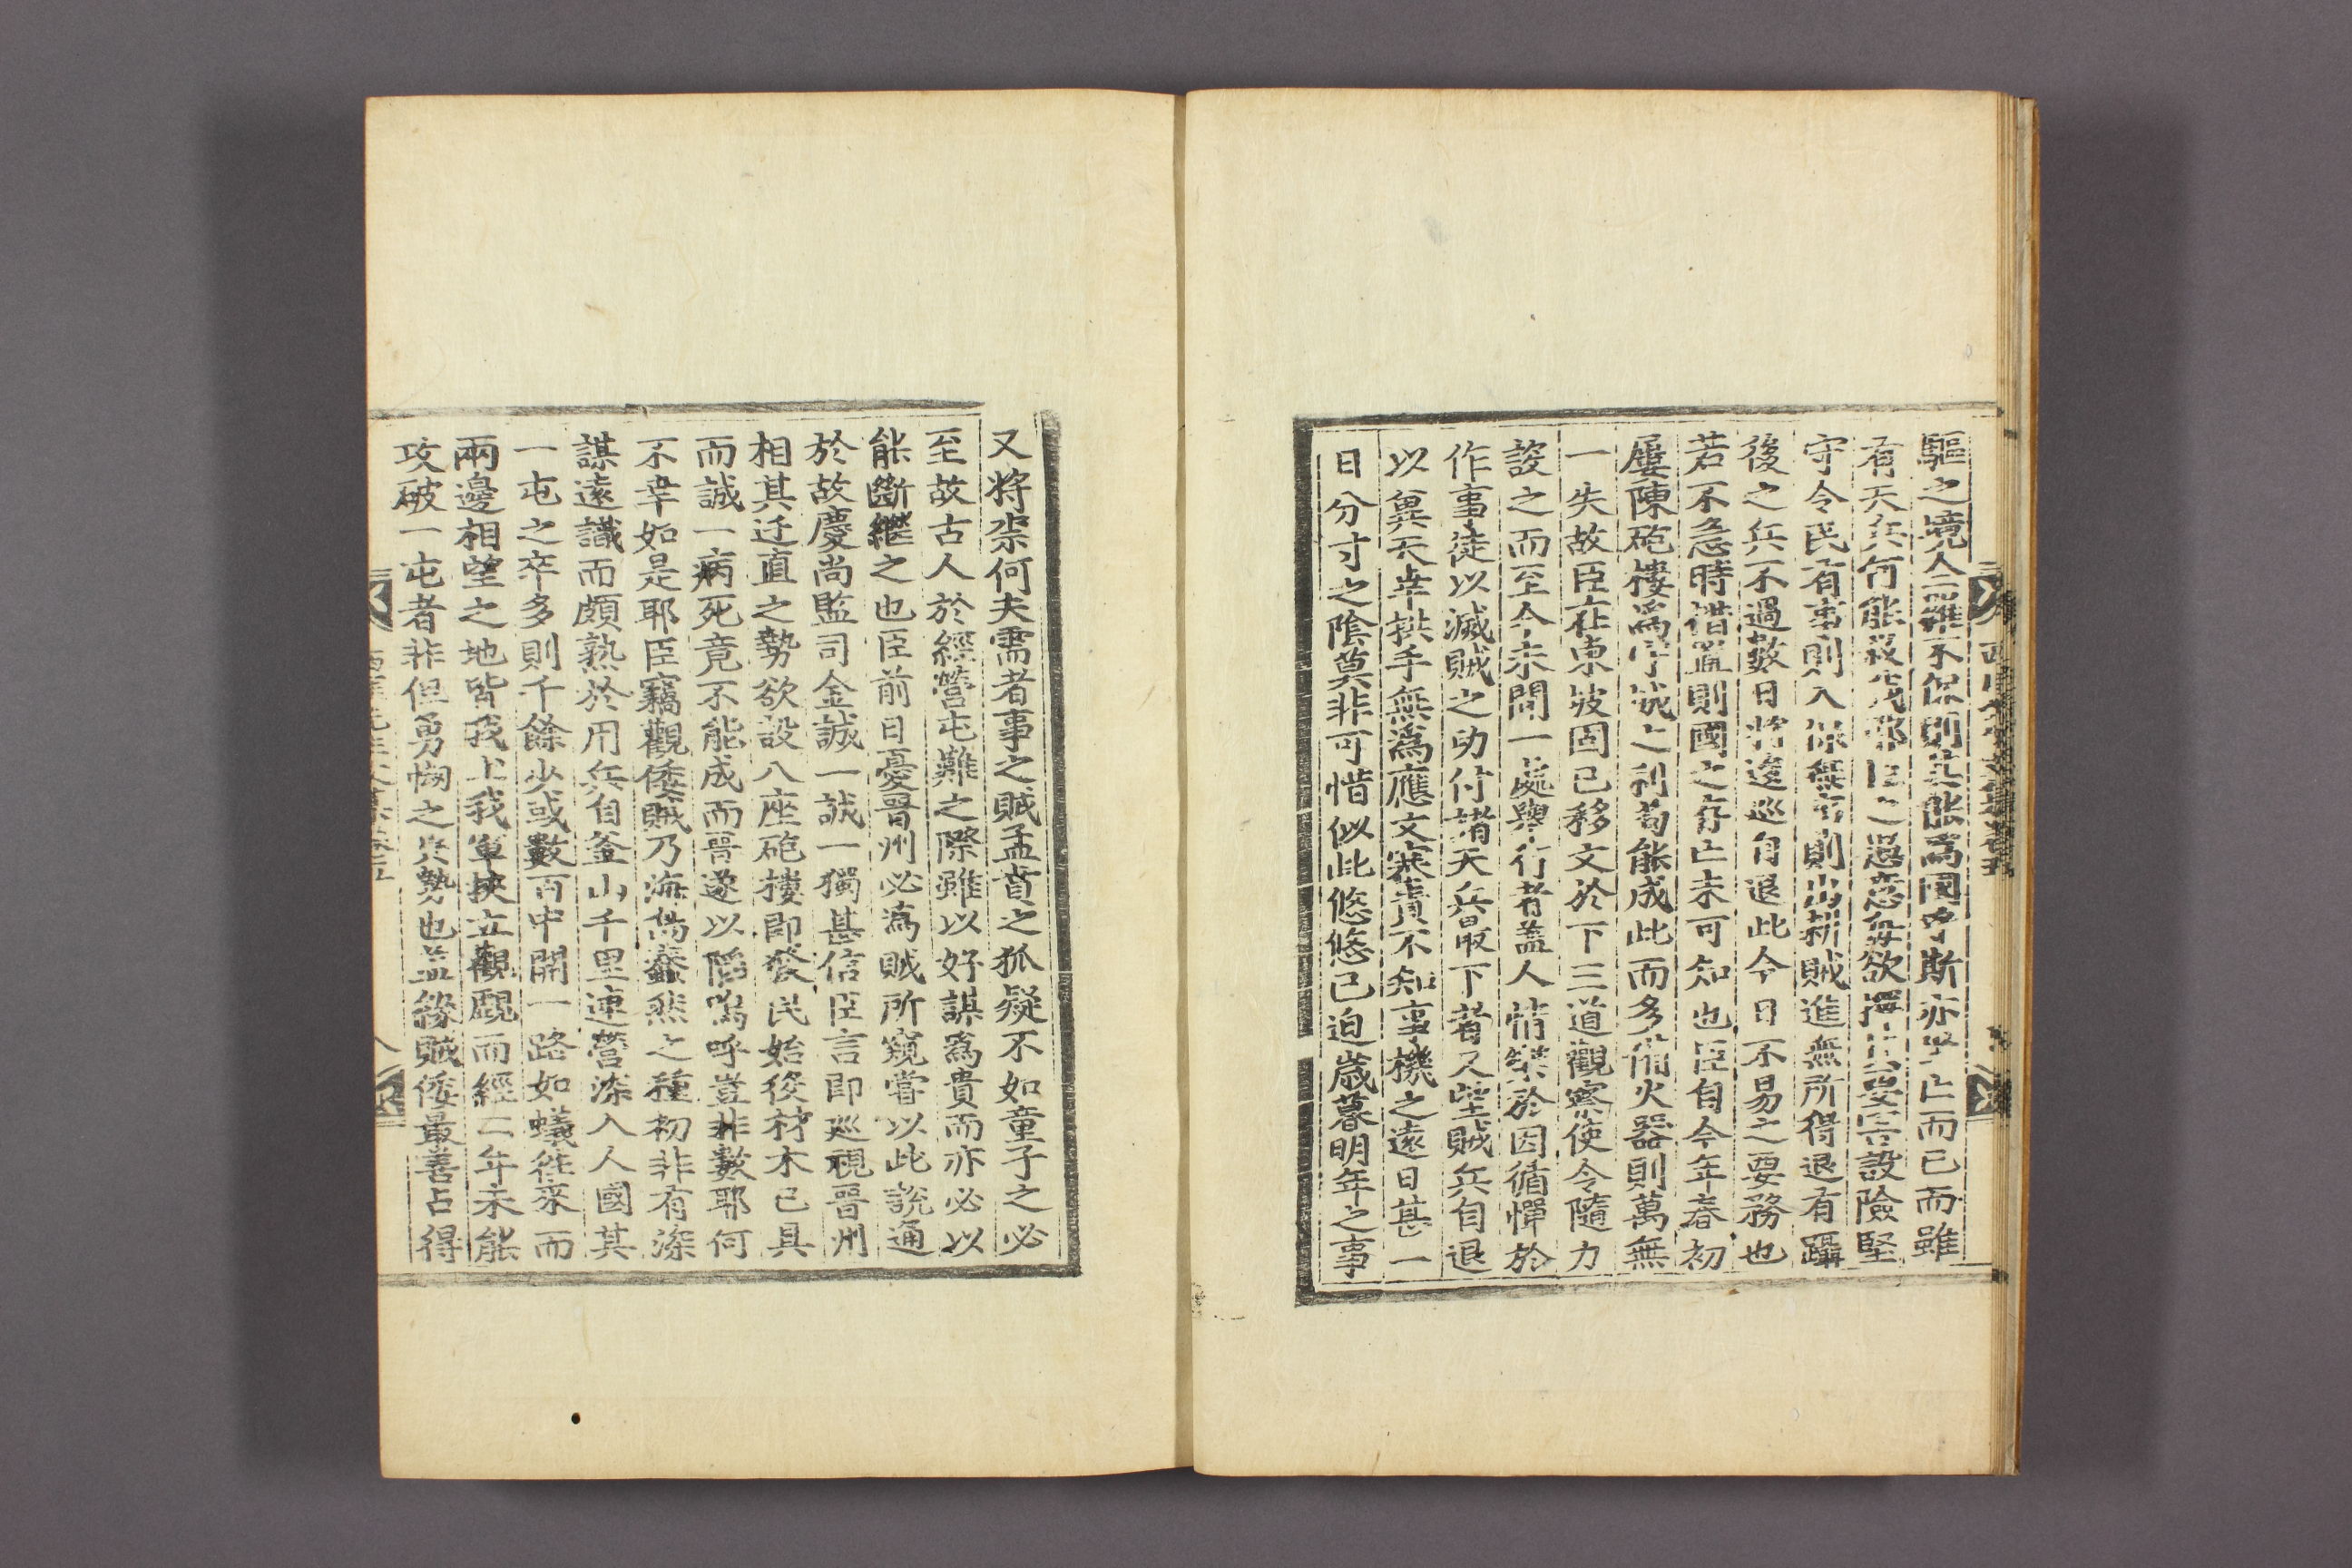 驅之境人二難不保則其能爲國乎斯亦學亡而已而雖
有天兵何能救哉耶臣之愚意每欲擇其要害設險堅
守令民有事則入保無事則出耕賊進無所得退有躡
後之兵不過數日將逡巡自退此今日不易之要務也
若不急時措置則國之存亡未可知也臣自今年春初
屢陳砲樓爲守城之利苟能成此而多備火器則萬無
一失故臣在東坡固已移文於下三道觀察使令隨力
設之而至今未聞一處擧行者盖人情樂於因循憚於
作事徒以滅賊之功付諸天兵最下者又望賊兵自退
以冀天幸拱手無爲應文塞責不知事機之遠日甚一
日分寸之陰莫非可惜似此悠悠已迫歲暮明年之事
又將柰何夫需者事之賊孟賁之狐疑不如童子之必
至故古人於經營屯難之際雖以好謀爲貴而亦必以
能斷繼之也臣前日憂晋州必爲賊所窺嘗以此說通
於故慶尚監司金誠一誠一獨甚信臣言即巡視晋州
相其迂直之勢欲設八座砲樓即發民始役材木已具
而誠一病死竟不能成而晋遂以陷嗚呼豈非數耶何
不幸如是耶臣竊觀倭賊乃海島蠢然之種初非有深
謀遠識而頗熟於用兵自釜山千里連營深入人國其
一屯之卒多則千餘少或數百中開一路如蟻徃來而
兩邊相望之地皆我土我軍挾立觀覰而經二年未能
攻破一屯者非但勇㥘之異勢也盖緣賊倭最善占得